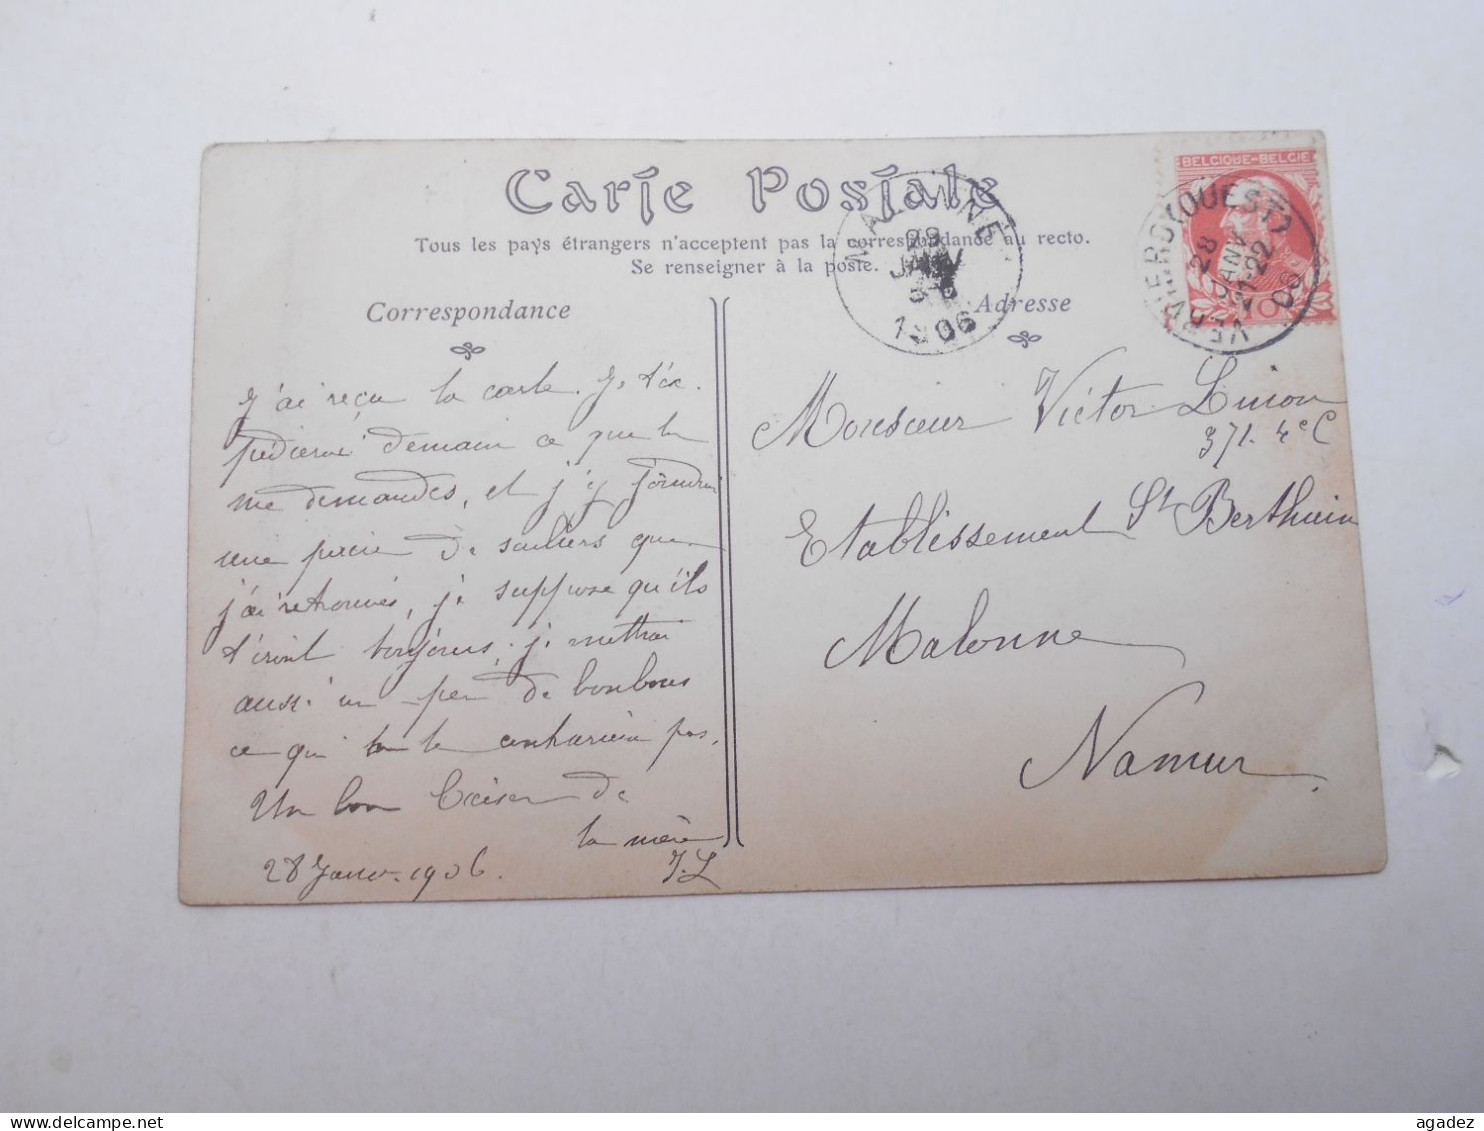 Carte Postale
Tous les pays étrangers n'acceptent pas la correspondance au recto.
Se renseigner à la poste.
Correspondance
J'ai reçu ta carte. Je t'ex-
pédierai demain ce que tu
me demandes, et j'y joindrai
une paire de souliers que
j'ai retrouvés, je suppose qu'ils
t'iront toujours; je mettrai
aussi un peu de bonbons
ce qui ne te contrariera pas.
Un bon baiser de
ta mère
28 Janv. 1906. J. L
Adresse
Monsieur Victor
371. 4e C
Etablissement St Berthuin
Malonne
Namur
BELGIQUE-BELGIE
10
VERVIERS (OUEST)
28
JANV
21-22
06
MALONNE
29
JANV
1906
agadez